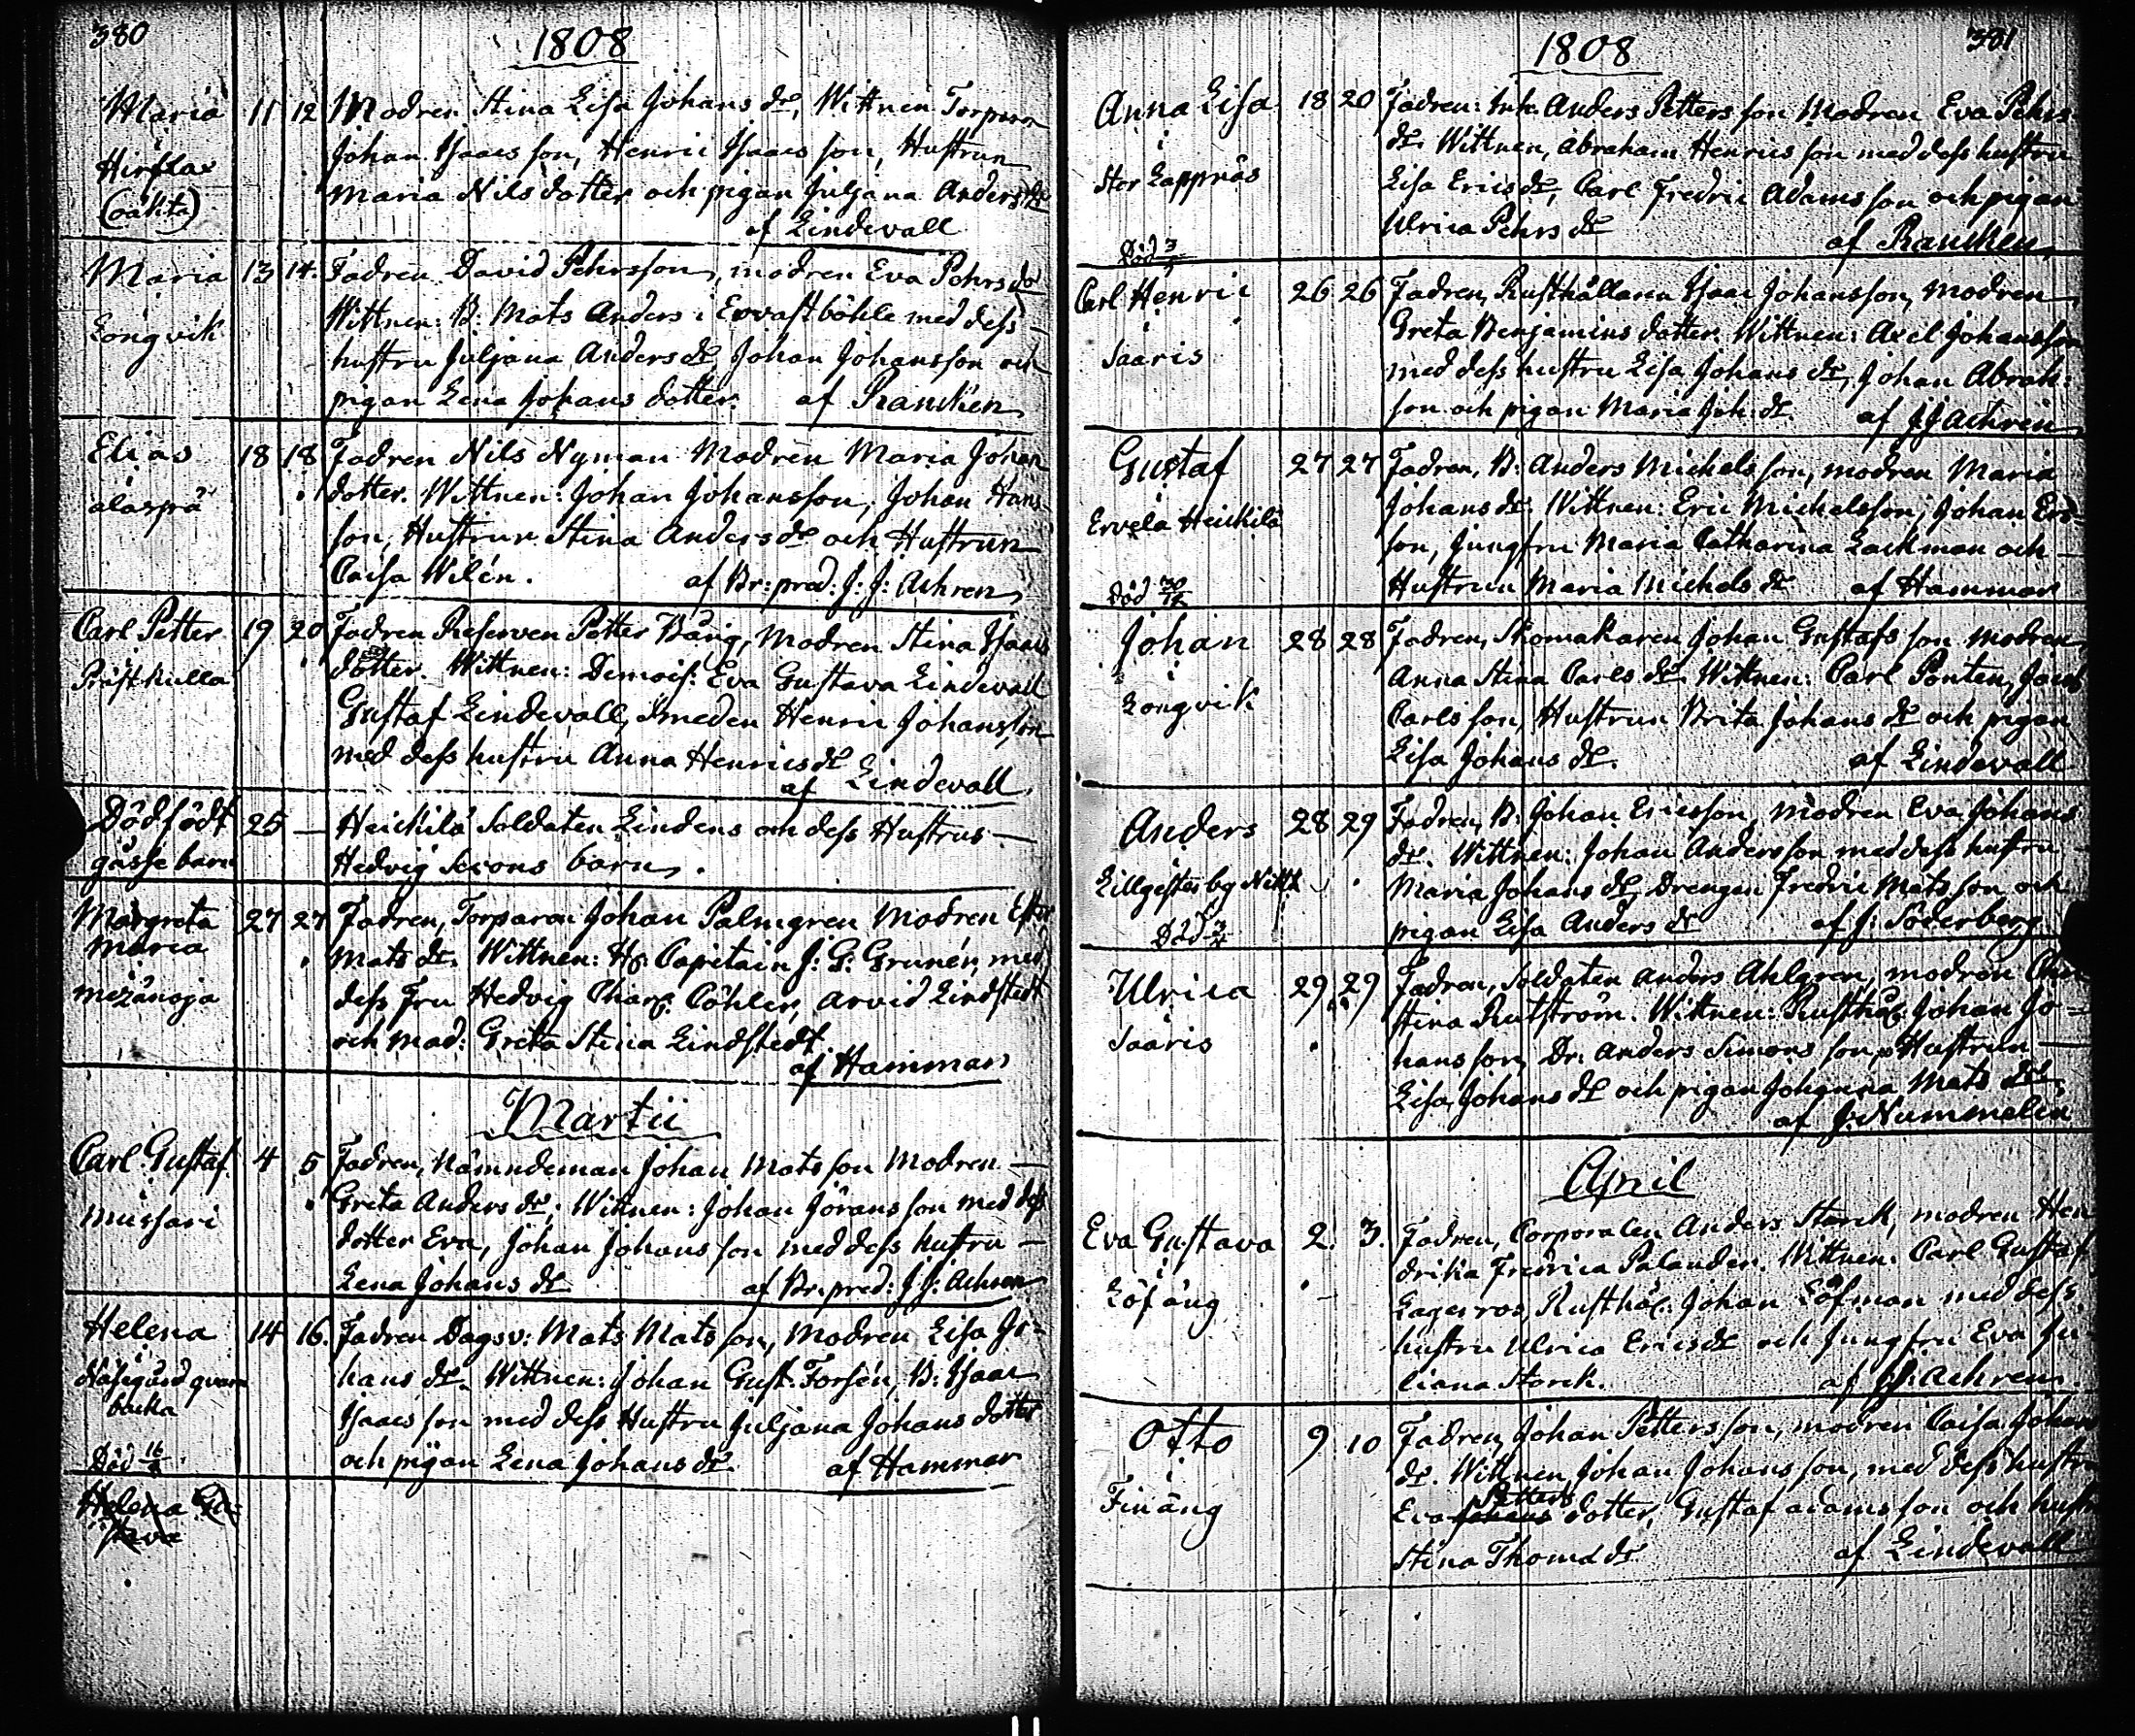 380
1808
Maria 11 12 Modren Stina Lisa Johans dr, Wittnen Torparn
i Johan Isaacs son, Henric Isaacs son, Hustrun
Hirflax Maria Nilsdotter och pigan Juljana Anders dr
(oäkta) af Lindevall
Maria 13 14. Fadren David Pehrsson, modren Eva Pehrs dr
Wittnen: B: Mats Anders i Evvastböhle med dess
Långvik hustru Juljana Anders dr Johan Johansson och
pigan Lena Johans dotter. af Rancken
Elias 18 18 Fadren Nils Nyman Modren Maria Johan
i dotter. Wittnen: Johan Johansson, Johan Hans
alasprä son, Hustrun Stina Anders dr och Hustrun
Caisa Wilén. af Br: pred: J: J: Achren
Carl Petter 19 20 Fadren Reserven Petter Bång, Modren Stina Isaacs
i dotter. Wittnen: Demois: Eva Gustava Lindevall
Pristkulla Gustaf Lindevall, Smeden Henric Johansson
med dess hustru Anna Henrics dr
af Lindevall
Dödfödt 25 — Heickilä Soldaten Lindens och dess Hustrus —
gässe barn Hedvig barn.
Margreta 27 27 Fadren, Torparen Johan Palmgren Modren
Maria Mats dr. Wittnen: Hr Capitain J: G: Grunér, med
i dess Fru Hedvig Char: Cöhler, Arvid Lindstedt
och Mad: Greta Stina Lindstedt
af Hammar
Martii
Carl Gustaf 4 5 Fadren, Nämndeman Johan Mats son Modren —
i Greta Anders dr. Wittnen: Johan Jörans son med dess
Mussari dotter Eva, Johan Johans son med dess hustru —
Lena Johans dr af Br. pred: J J: Achren
Helena 14 16. Fadren Dagsv: Mats Mats son, Modren Lisa Jo-
i hans dr. Wittnen: Johan Gust. Forsén, B: Isaac
Näsegård qvarn Isaacs son med dess Hustru Juljana Johans dotter
backa och pigan Lena Johans dr. af Hammar
Död
Helena Gu-
stava
381
1808
Anna Lisa 18 20 Fadren: Inh: Anders Petters son Modren Eva Pehrs
i dr. Wittnen, Abraham Henrics son med dess hustru
Stor Lappnäs Lisa Erics dr, Carl Fredric Adams son och pigan
Ulrica Pehrs dr
Död af Rancken
Carl Henric 26 26 Fadren, Rusthållaren Isaac Johansson, Modren
i Greta Benjamins dotter. Wittnen: Axel Johansson
Saaris med dess hustru Lisa Johans dr, Johan Abrah:
son och pigan Maria Joh: dr. af J J Achrén
Gustaf 27 27 Fadren, B: Anders Michels son, modren Maria
i Johans dr. Wittnen: Eric Michelsson, Johan Ers-
Ervela Heickilä son, Jungfru Maria Catharina Lackman och —
Död 30/12 Hustrun Maria Michels dr af Hammar
Johan 28 28 Fadren, Skomakaren Johan Gustafs son Modren
i Anna Stina Carls dr. Wittnen: Carl Ponten, Jacob
Långvik Carls son, Hustrun Brita Johans dr och pigan
Lisa Johans dr. af Lindevall
Anders 28 29 Fadren, B: Johan Ericsson, Modren Eva Johans
dr. Wittnen: Johan Andersson med dess hustru
Lillgesterby Maria Johans dr, Drengen Fredric Mats son och
Död 3/4 pigan Lisa Anders dr af J: Söderberg
Ulrica 29 29 Fadren, Soldaten Anders Ahlgren, modren
i stina Rutström. Wittnen: Rusthål: Johan Jo-
Saaris hans son, Dr. Anders Simons son, Hustrun —
Lisa Johans dr och pigan Johanna Mats dr
af J: Nummelin
April
Eva Gustava 2. 3. Fadren, Corporalen Anders Storck, modren Hen
i drika Fredrica Palander. Wittnen: Carl Gustaf
Löfäng Lagerros, Rusthål: Johan Löfman med dess
hustru Ulrica Erics dr och Jungfru Eva Ju-
liana Storck. af JJ: Achren.
Otto 9 10 Fadren, Johan Petters son, modren Caisa Johans
i dr. Wittnen Johan Johans son, med dess hustru
Finäng Eva Johans Petters dotter, Gustaf Adams son och hustr
Stina Thomd dr af Lindevall